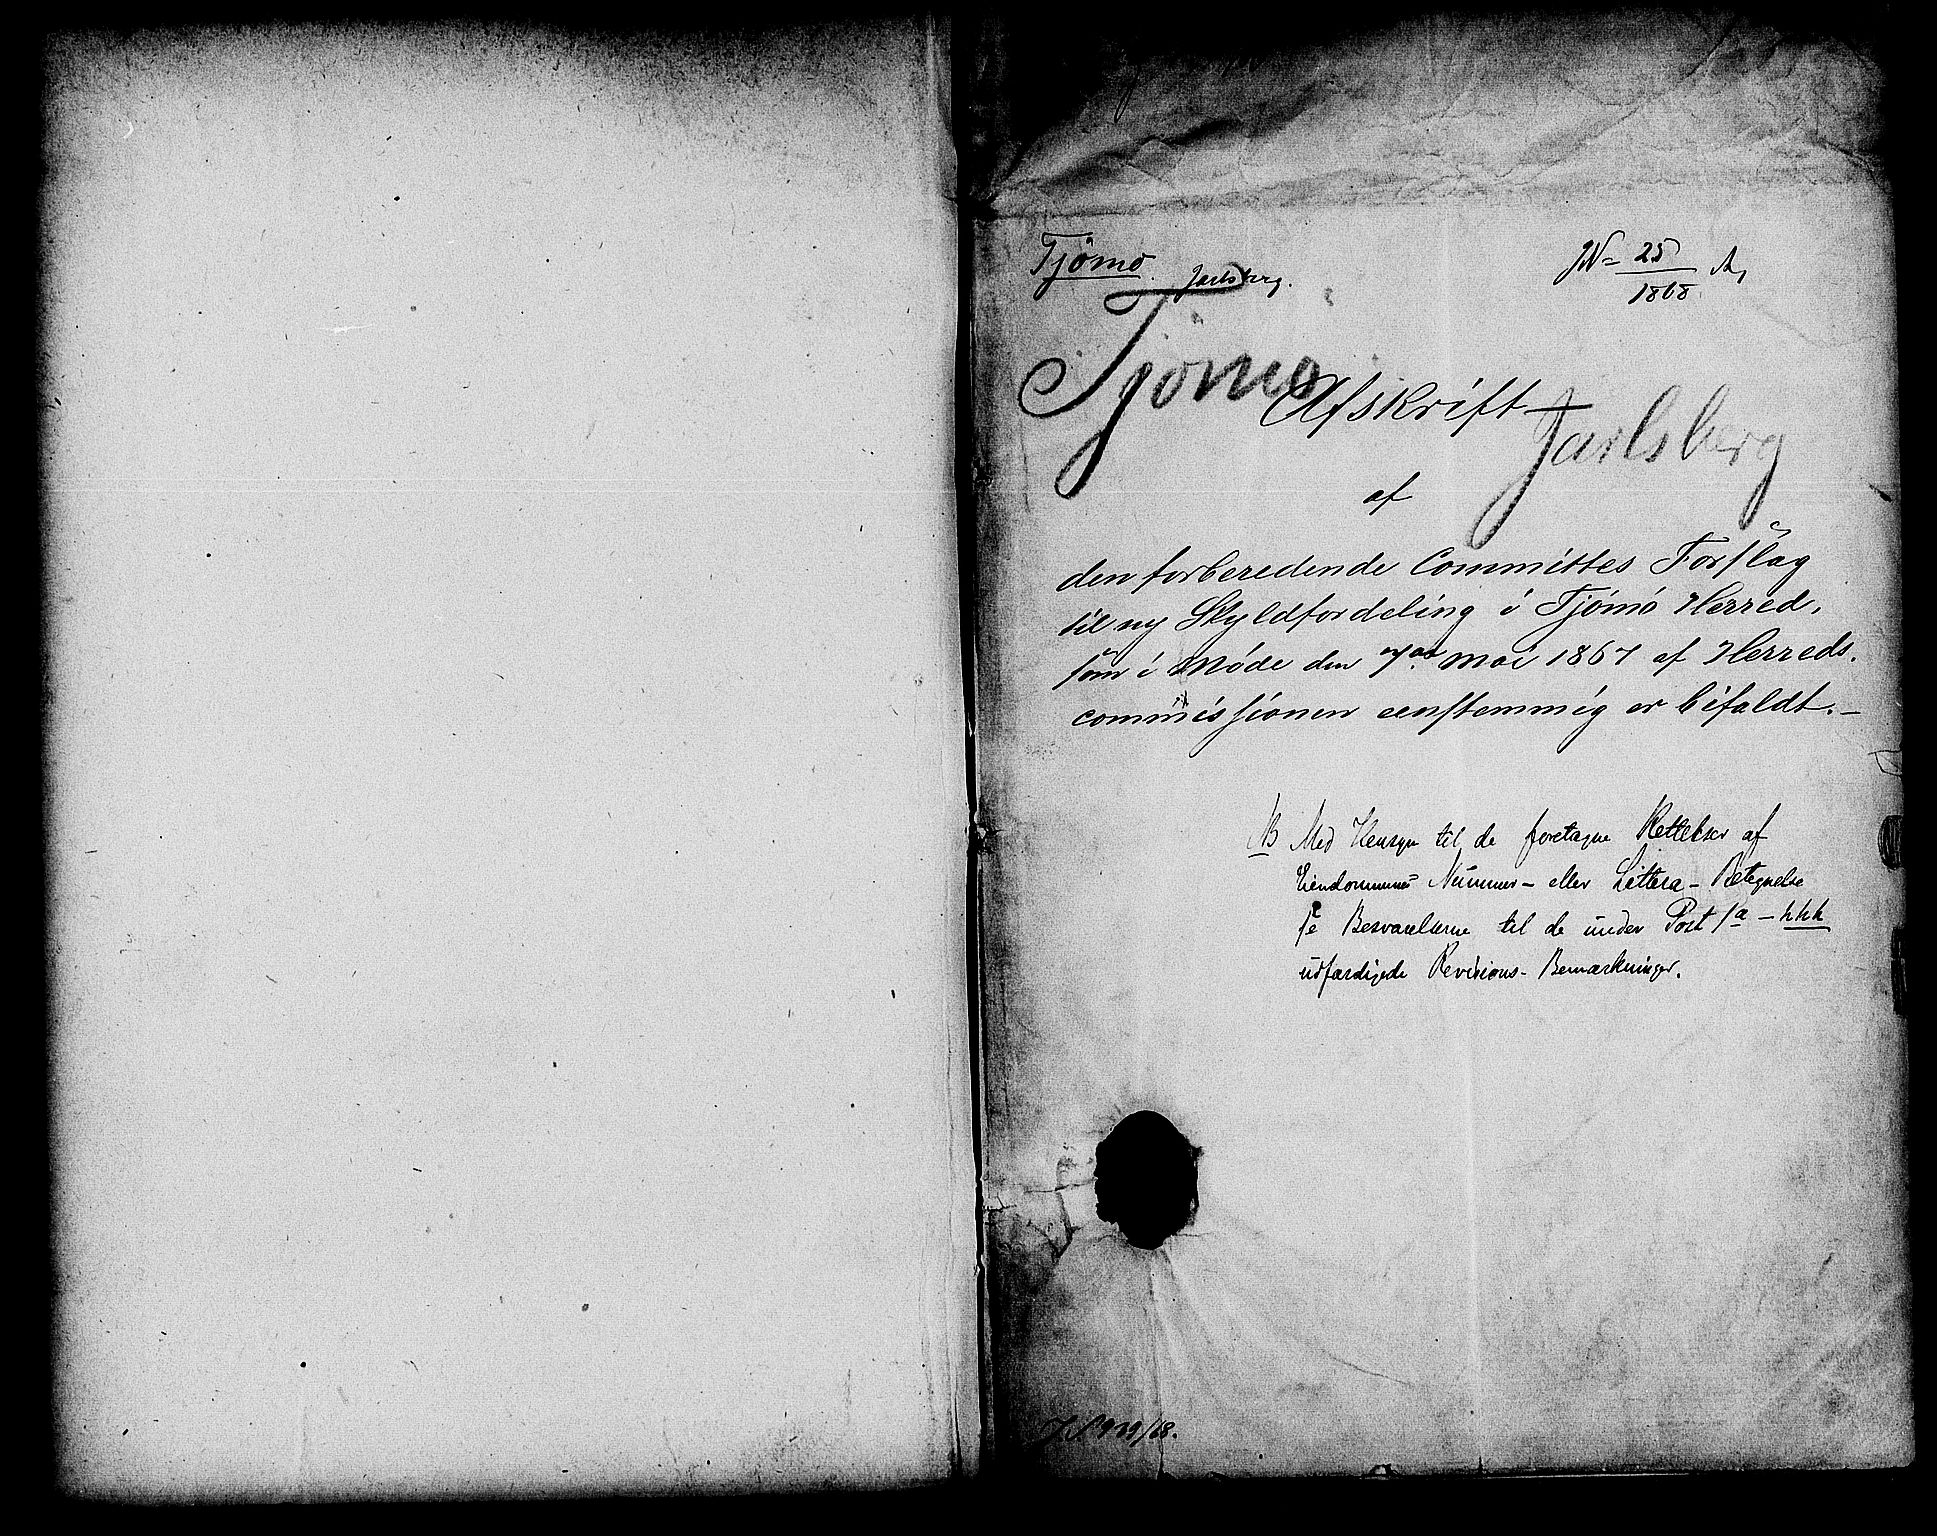 Tjömö. Jarlsberg.
JN= 25/1868
Tjömö
Afskrift
Jarlsberg
af
den forberedende Committes Forslag
til ny Skyldfordeling i Tjömö Herred,
som i Møde den 7de Mai 1867 af Herreds-
commissionen eenstemmig er bifaldt.—
NB Med Hensyn til de foretagne Rettelser af
Eiendommenes Nummer- eller Littera-Betegnelse
se Besvarelserne til de under Post 1a - hhh
udfærdigede Revisions-Bemærkninger.
/68.